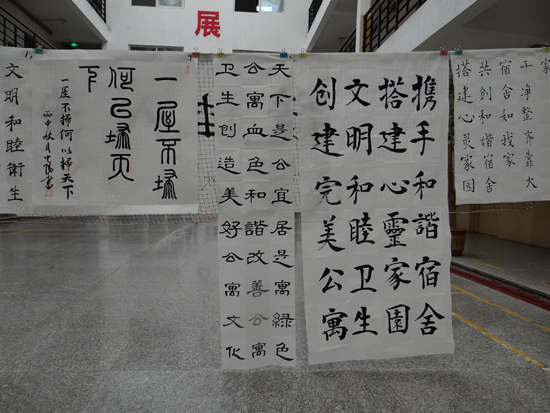 展
家
干净整齐靠大
宿舍如我家
共创和谐宿舍
搭建心灵家园
携手和諧宿舍
搭建心靈家園
文明和睦卫生
创建完美公寓
天下是公宜居是寓緑色
公寓血色和諧改善公寓
卫生创造美好公寓文化
一屋不埽
何以埽天
下
一屋不掃何以掃天下
丙申秋月
文明和睦衛生